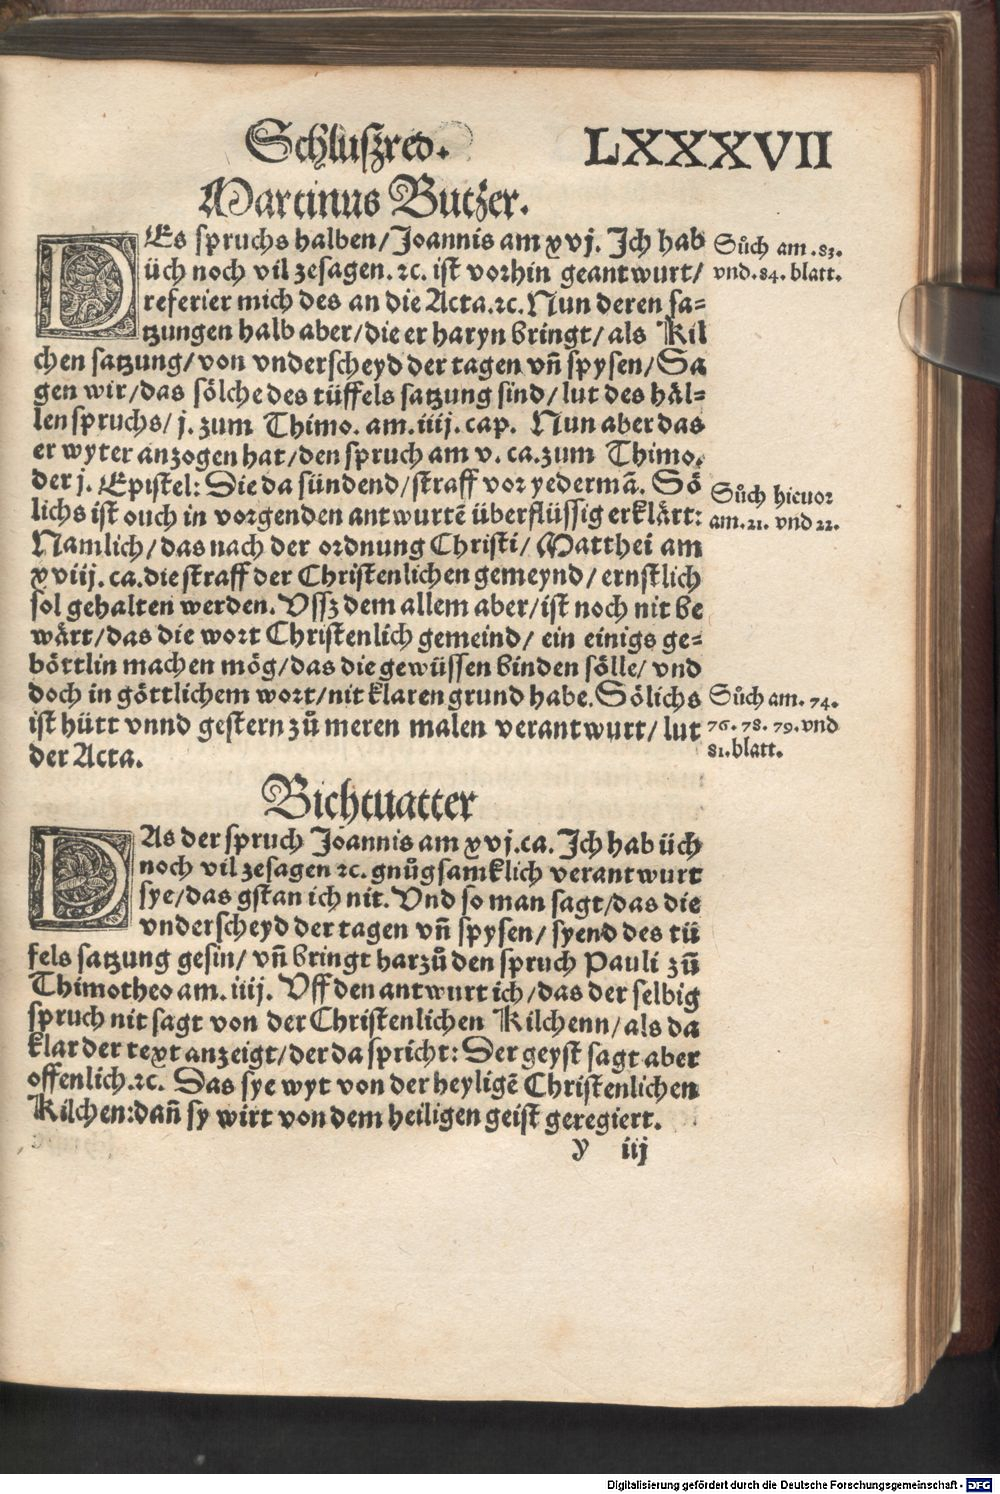 Schluszred. LXXXVII
Martinus Butzer.
DEs spruchs halben/Joannis am xvj. Ich hab
üch noch vil zesagen.ꝛc. ist vorhin geantwurt/
referier mich des an die Acta.ꝛc. Nun deren sa⸗
tzungen halb aber/die er haryn bringt/als Kil
chen satzung/von vnderscheyd der tagen vñ spysen/Sa
gen wir/das sölche des tüffels satzung sind/lut des häl⸗
len spruchs/j. zum Thimo. am.iiij.cap. Nun aber das
er wyter anzogen hat/den spruch am v. ca.zum Thimo.
der j. Epistel: Die da sündend/straff vor yedermā. Sö
lichs ist ouch in vorgenden antwurtē überflüssig erklärt:
Namlich/das nach der ordnung Christi/Matthei am
xviij. ca.die straff der Christenlichen gemeynd/ernstlich
sol gehalten werden. Vssz dem allem aber/ist noch nit be
wärt/das die wort Christenlich gemeind/ein einigs ge⸗
böttlin machen mög/das die gewüssen binden sölle/vnd
doch in göttlichem wort/nit klaren grund habe. Sölichs
ist hütt vnnd gestern zů meren malen verantwurt/lut
der Acta.
Sůch am .83.
vnd.84. blatt.
Sůch hieuor
am.21. vnd 22.
Sůch am. 74.
76. 78. 79.vnd
81.blatt.
Bichtuatter
DAs der spruch Joannis am xvj.ca. Ich hab üch
noch vil zesagen ꝛc. gnůgsamklich verantwurt
sye/das gstan ich nit. Vnd so man sagt/das die
vnderscheyd der tagen vñ spysen/syend des tü
fels satzung gesin/vñ bringt harzů den spruch Pauli zů
Thimotheo am.iiij. Vff den antwurt ich/das der selbig
spruch nit sagt von der Christenlichen Kilchenn/als da
klar der text anzeigt/der da spricht: Der geyst sagt aber
offenlich.ꝛc. Das sye wyt von der heyligē Christenlichen
Kilchen:dañ sy wirt von dem heiligen geist geregiert.
y iij
Digitalisierung gefördert durch die Deutsche Forschungsgemeinschaft - DFG